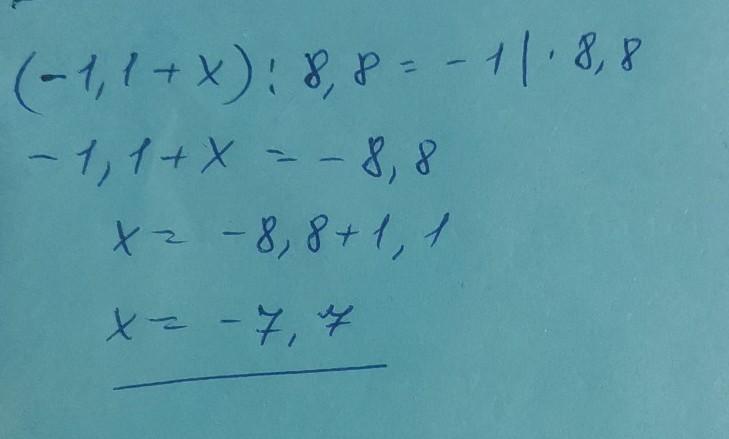 (-1,1+x):8,8=-1|·8,8
-1,1+x=-8,8
x=-8,8+1,1
x=-7,7